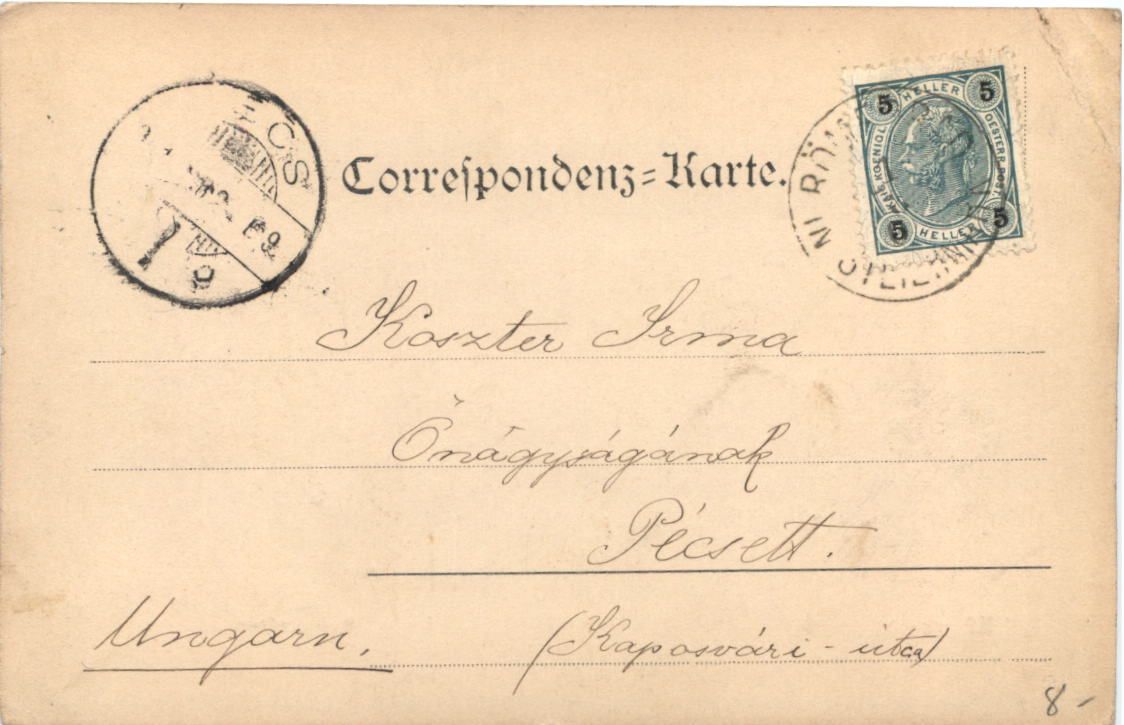 ÉCS
Correspondenz=Karte.
5 HELLER 5
KAIS. KOENIGL. OESTERR. POST.
5 HELLER 5
Koszter Irma
Őnágyságának
Pécsett.
Ungarn. (Kaposvári-útca)
8-